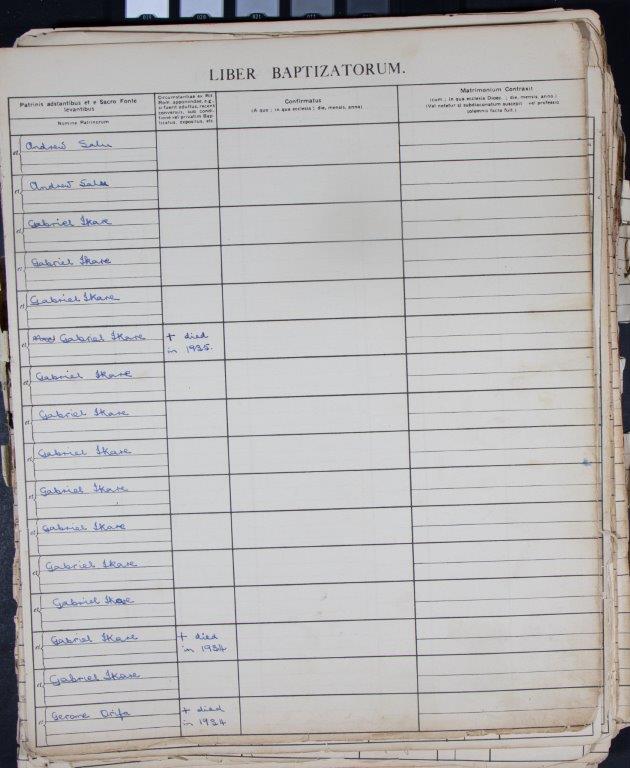 LIBER BAPTIZATORUM.
Patrinis adstantibus et e Sacro Fonte
levantibus
Nomina Patrinorum
Circumstantiae ex Rit.
Rom. apponendae, e.g.,
si fuerit adultus, recens
conversus, sub condi-
tione vel privatim Bap-
tizatus, expositus, etc.
Confirmatus
(A quo ; in qua ecclesia ; die, mensis, anno)
Matrimonium Contraxit
(cum ; in qua ecclesia Dioec. ; die, mensis, anno.)
(Vel notetur si subdiaconatum suscepit vel professio
solemnis facta fuit.)
Andrew Salu
Andrew Salu
Gabriel Ikare
Gabriel Ikare
Gabriel Ikare
Gabriel Ikare + died
in 1935.
Gabriel Ikare
Gabriel Ikare
Gabriel Ikare
Gabriel Ikare
Gabriel Ikare
Gabriel Ikare
Gabriel Ikare
Gabriel Ikare + died
in 1934
Gabriel Ikare
Gerome Orifa + died
in 1934